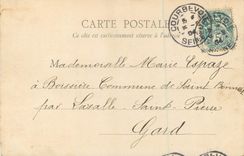 CARTE POSTALE
Ce côté est exclusivement réservé à l'adresse
COURBEVOIE
SEINE
Mademoiselle Marie Espaze
à Boissière Commune de Saint Bonnet
par Lasalle Saint Pierre
Gard